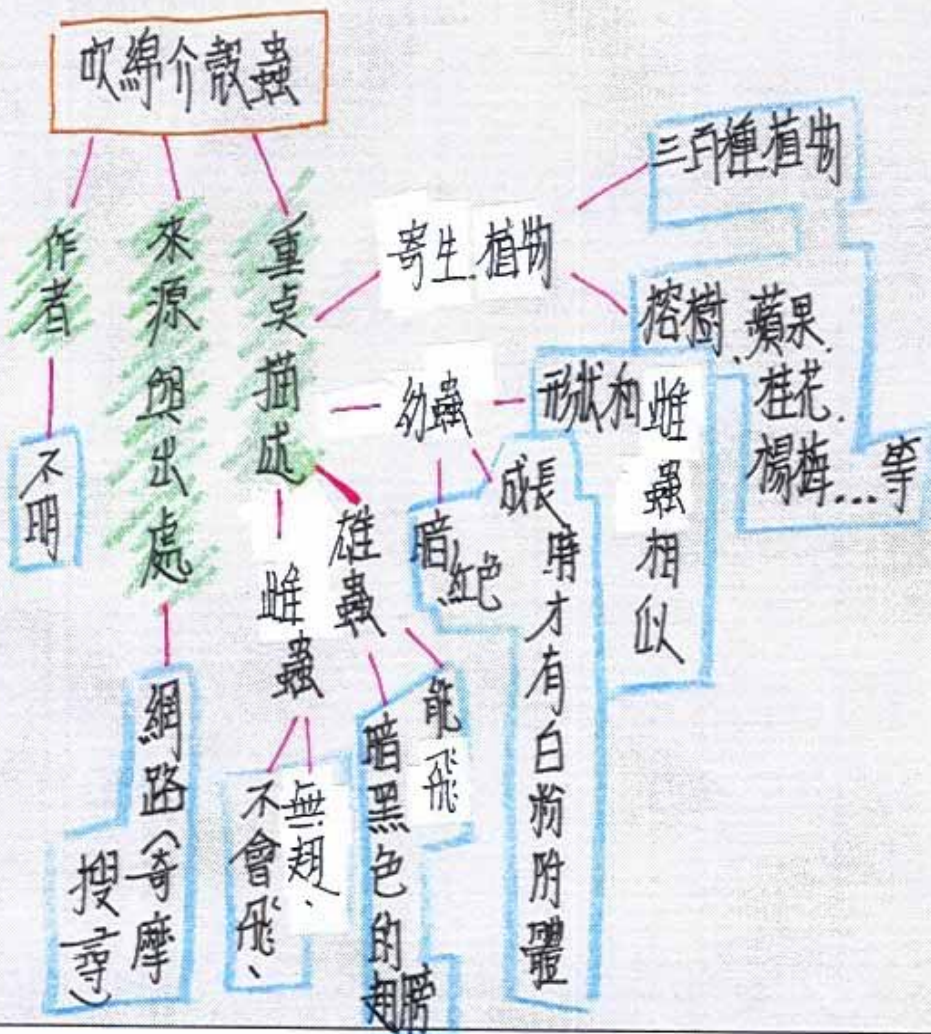 吹綿介殼蟲
作者
不明
來源與出處
網路(奇摩
搜尋)
重点描述
寄生.植物
三百種植物
榕樹、蘋果.
桂花.
楊梅...等
幼蟲
形狀和雌蟲相似
暗紅色
成長時才有白粉附體
雄蟲
能飛
暗黑色的翅膀
雌蟲
無翅、
不會飛、